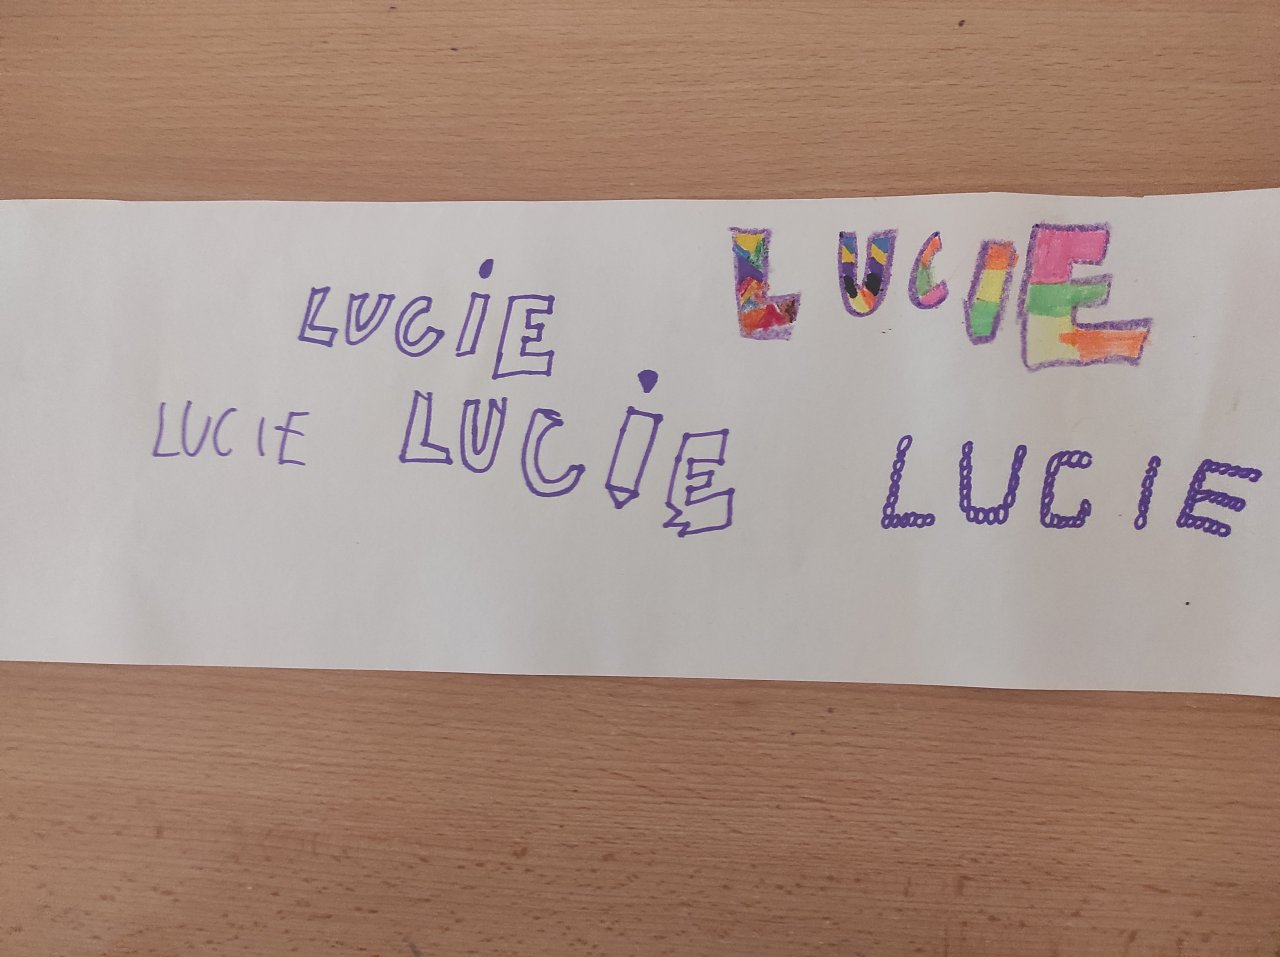 LUCiE
LUCIE
LUCIE
LUCiE
LUCIE